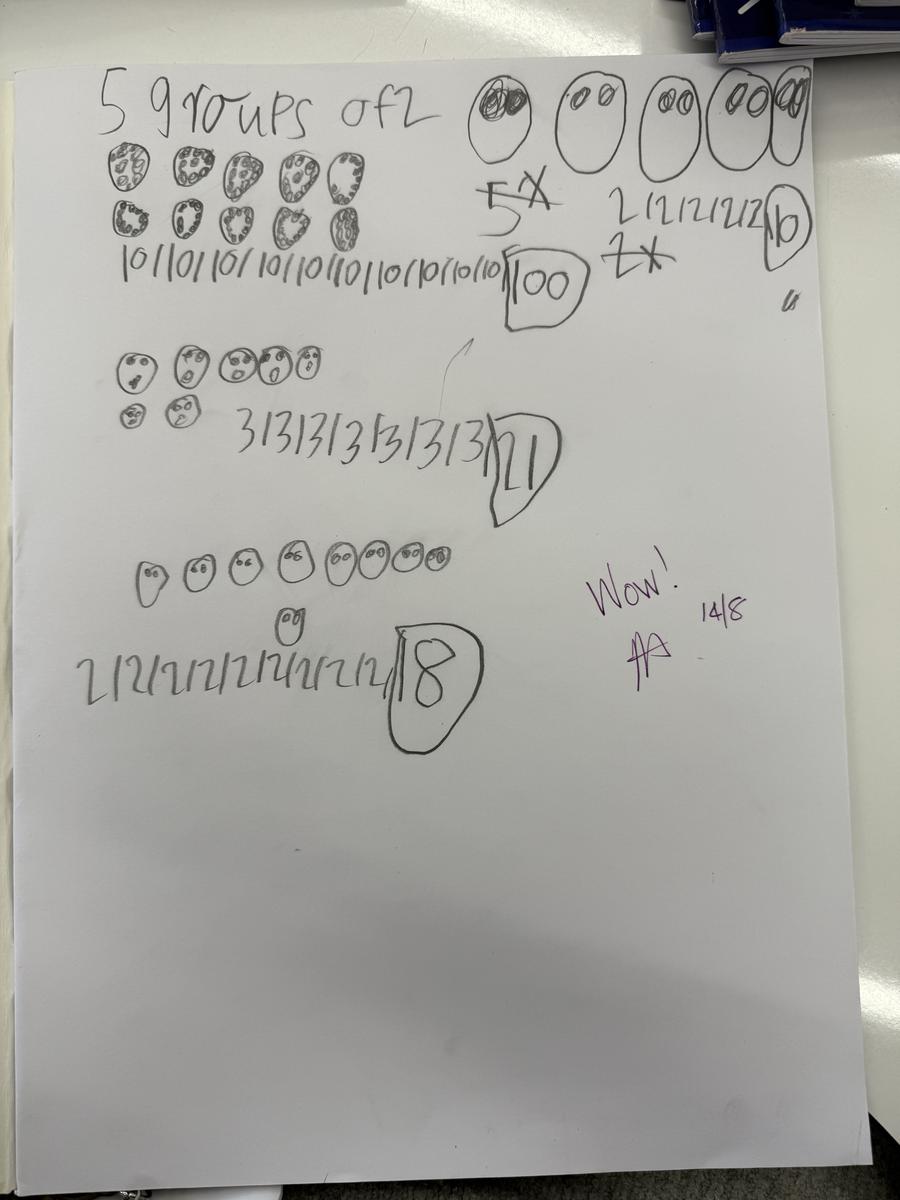 5 groups of 2
5x 2/2/2/2/2/10
2x
10/10/10/10/10/10/10/10/10/10/100
3/3/3/3/3/3/3/21
2/2/2/2/2/2/2/2/2/18
Wow!
AA 14/8